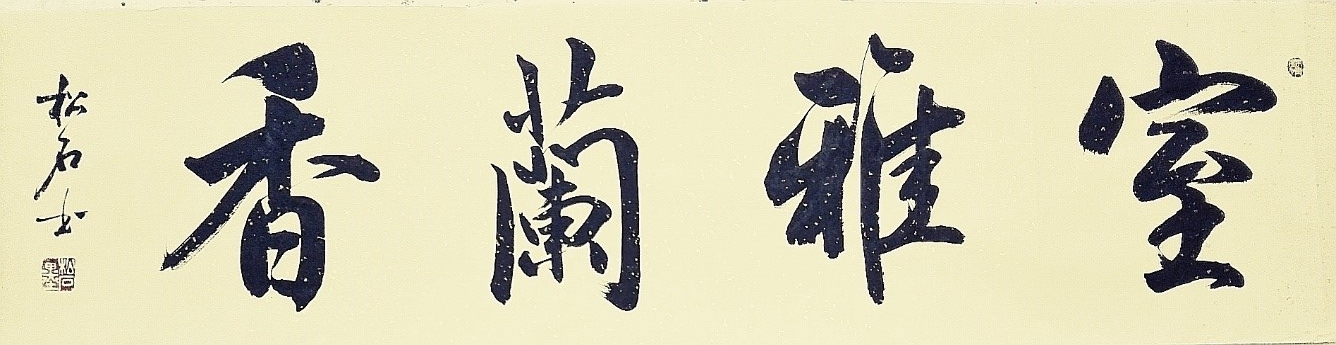 室雅蘭香
松石书